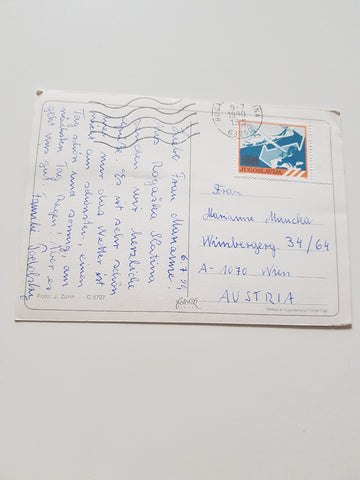 6.7.90
Liebe Frau Marianne!
Aus Rogaška Slatina
senden wir herzliche
Grüße. Es ist sehr schön
nur das Wetter ist
nicht am schönsten, einen
Tag schön und sonnig, am
nächsten Tag Regen, aber es
geht uns gut. Familie
9-7
1990
JUGOSLAVIJA
Frau
Marianne Mucha
Wimbergerg. 34/64
A-1070 Wien
AUSTRIA
Foto: J. Zorin C 5727